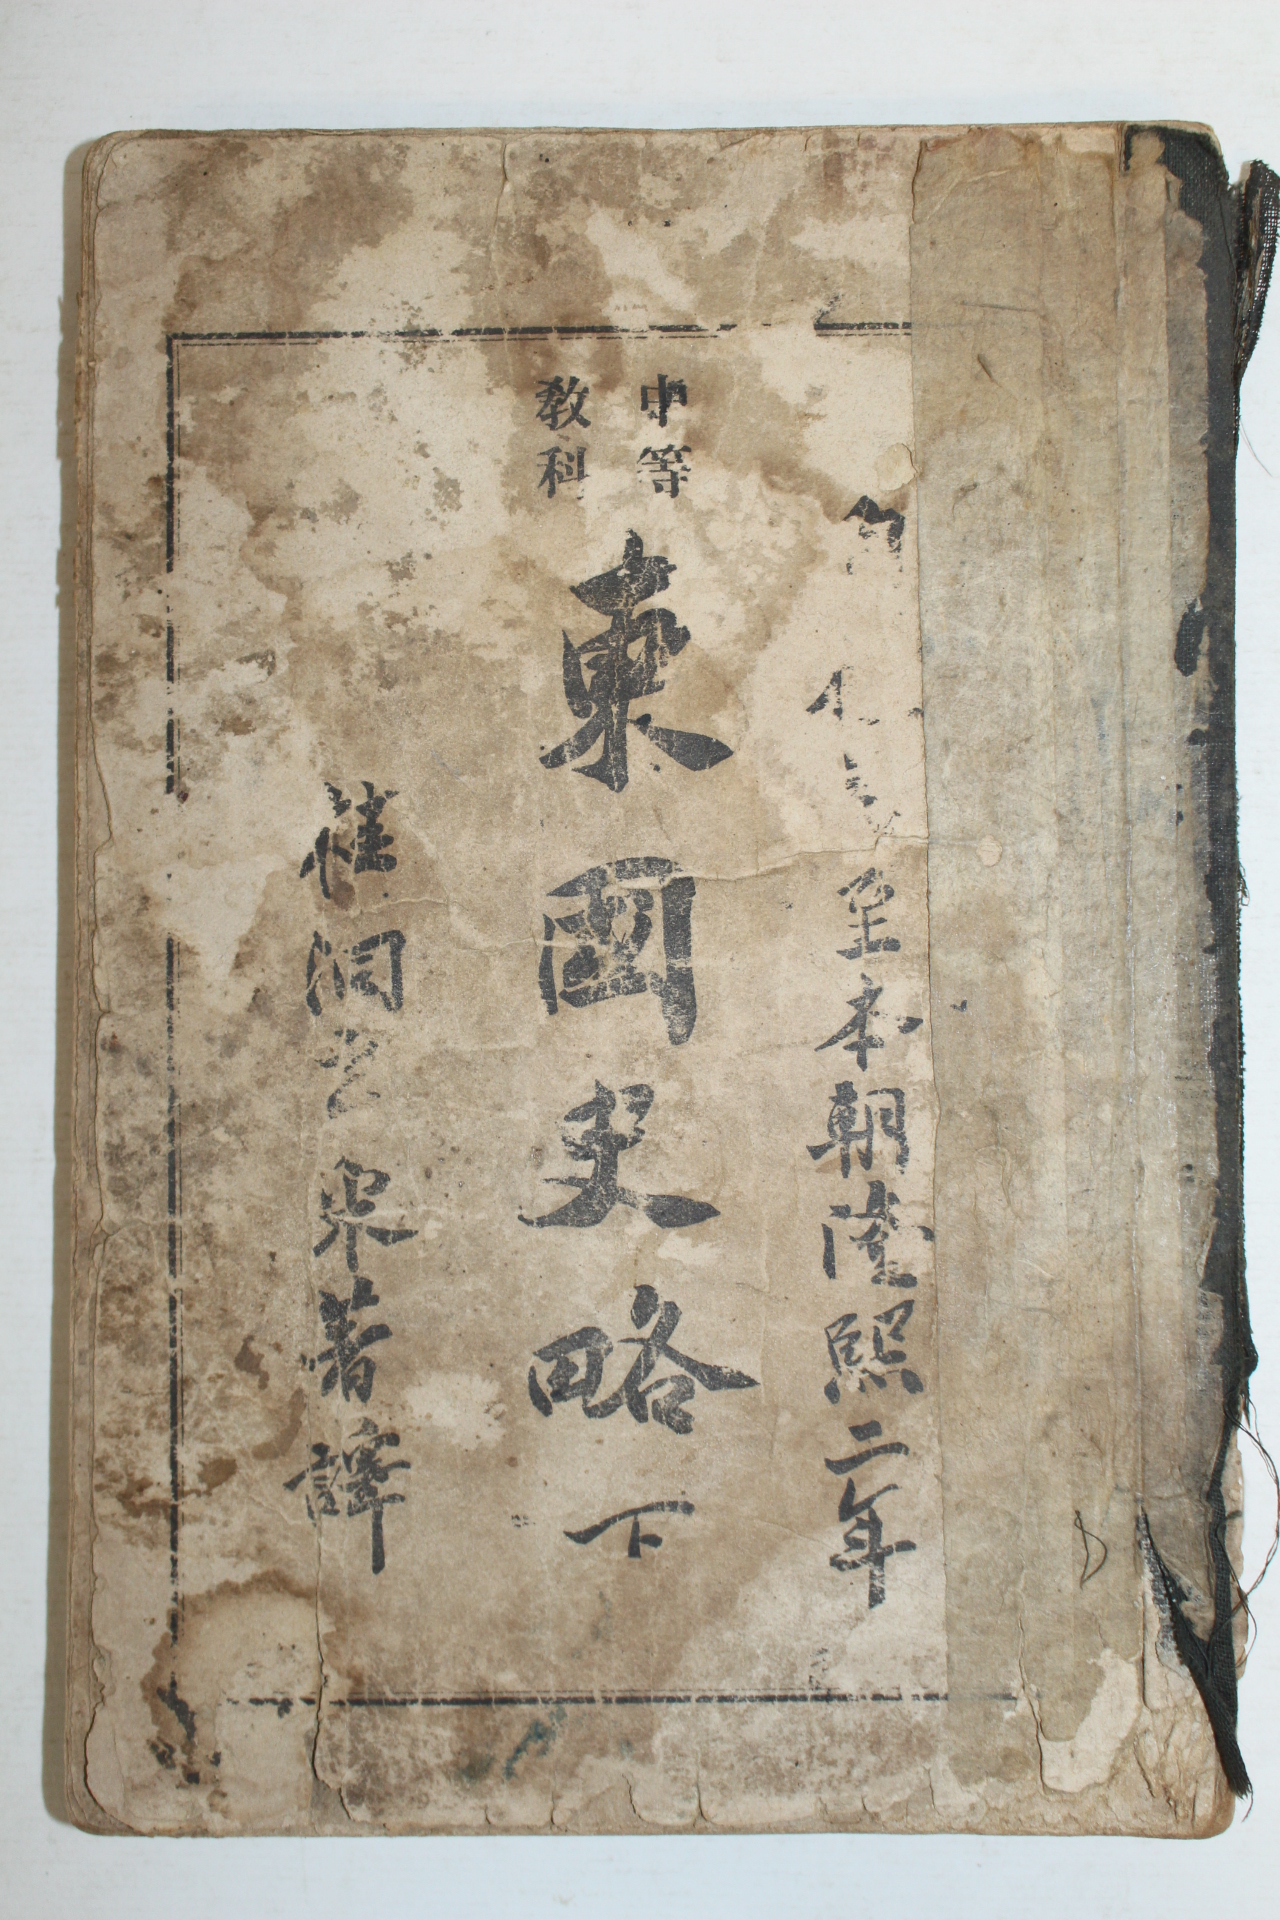 至本朝隆熙二年
中等
敎科
東國史略 下
洞玄采著譯